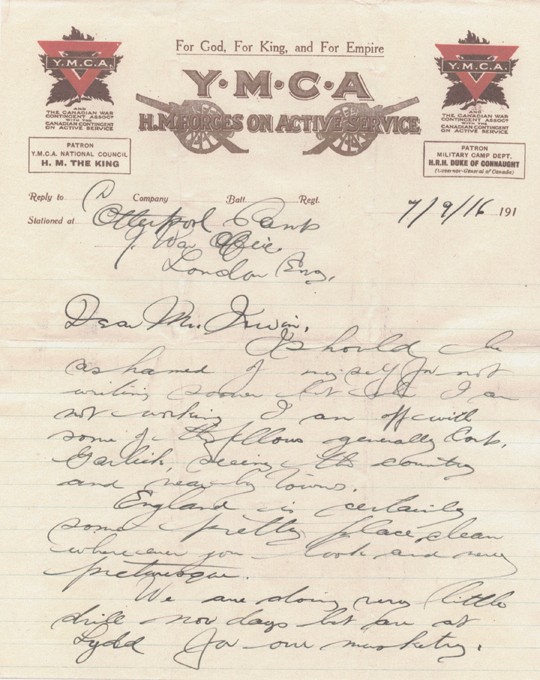 For God, For King, and For Empire
Y·M·C·A
H.M. FORCES ON ACTIVE SERVICE
Y.M.C.A.
AND
THE CANADIAN WAR
CONTINGENT ASSOCN
WITH THE
CANADIAN CONTINGENT
ON ACTIVE SERVICE
PATRON
Y.M.C.A. NATIONAL COUNCIL
H. M. THE KING
Y.M.C.A.
AND
THE CANADIAN WAR
CONTINGENT ASSOCN
WITH THE
CANADIAN CONTINGENT
ON ACTIVE SERVICE
PATRON
MILITARY CAMP DEPT.
H.R.H. DUKE OF CONNAUGHT
(Governor-General of Canada)
Reply to Company Batt. Regt.
7/9/16 191
Stationed at Otterpool
War Office
London Eng.
Dear Mr. Irwin,
I should be
ashamed of myself for not
writing sooner but when I am
not working I am off with
some of the fellows generally Corp.
Garlick, seeing the country
and nearby towns.
England is certainly
some pretty place, clean
wherever you look and very
picturesque.
We are doing very little
drill now days but are at
Lydd for our musketry.